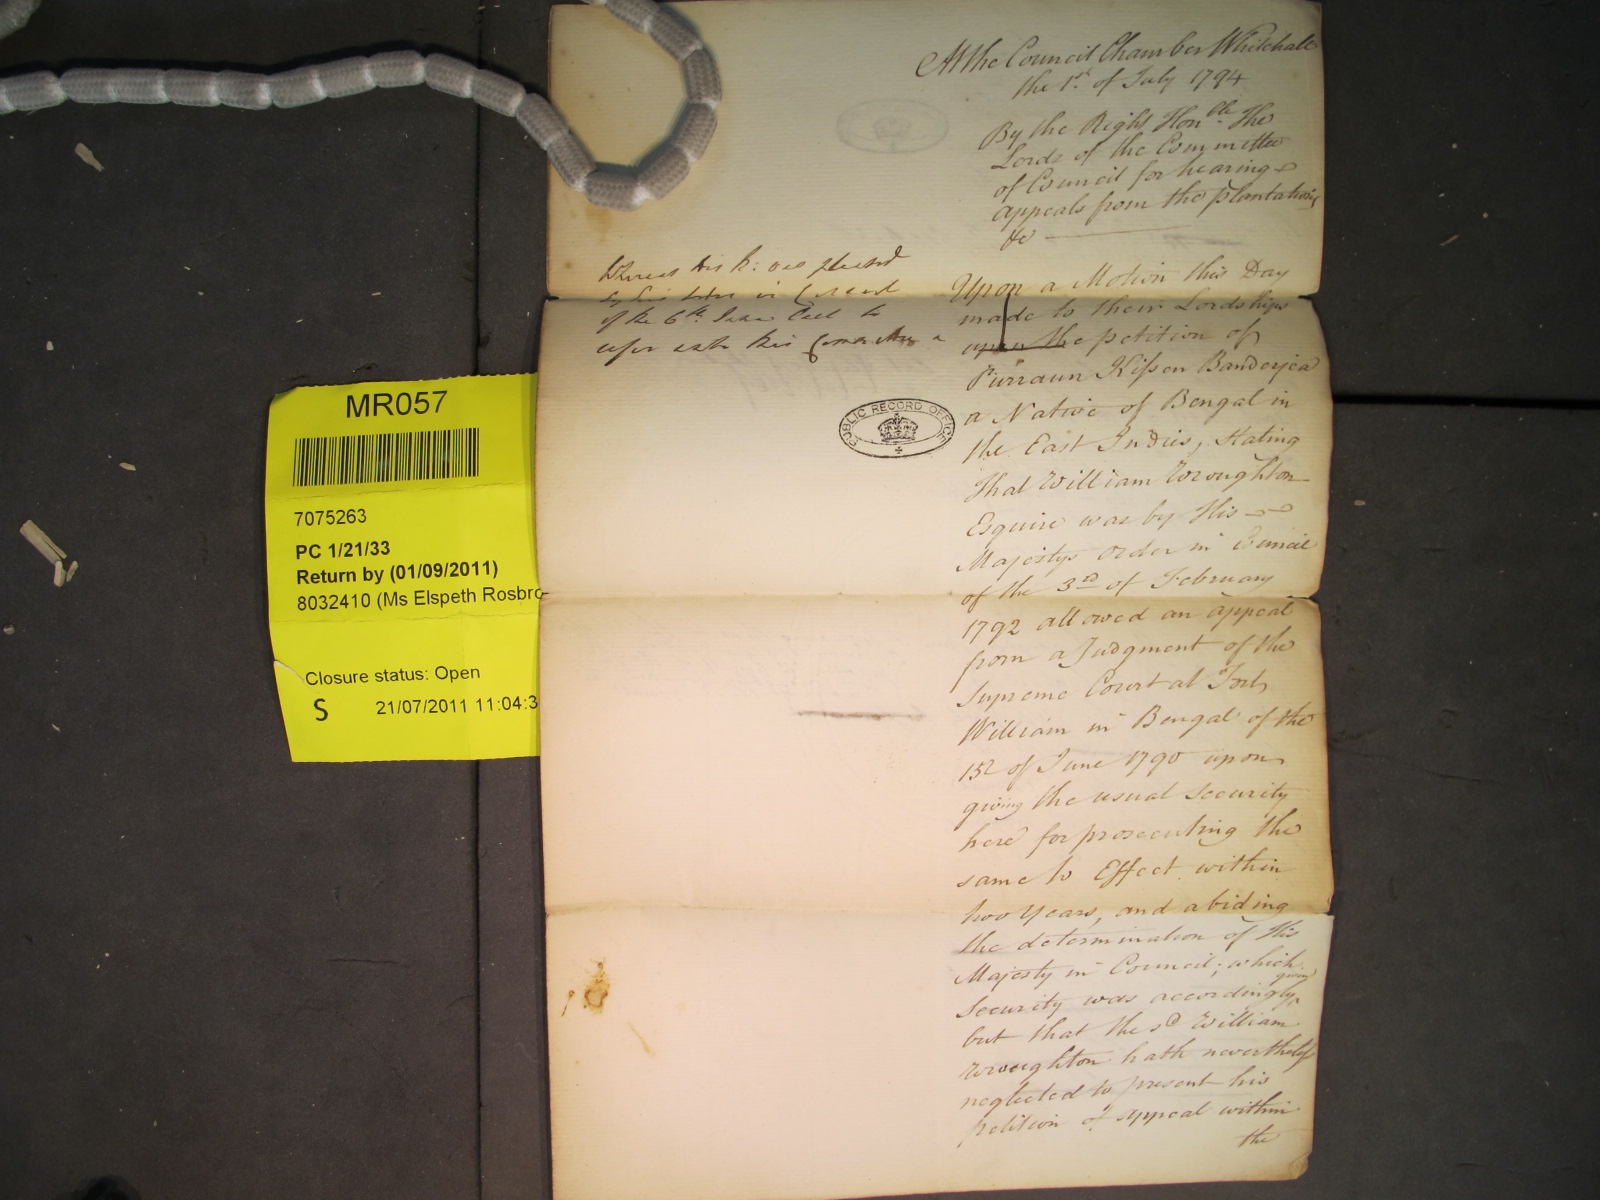 At the Council Chamber Whitehall
the 1st of July 1794
By the Right Honble The
Lords of the Committee
of Council for hearing
appeals from the plantations
&c
Whereas his M: was pleased
by his Order in Council
of the 6th
refer unto this Committee a
Upon a Motion this Day
made to their Lordships
upon the petition of
Purraun Kissen Banderjea
a Native of Bengal in
the East Indies, Stating
That William Wroughton
Esquire was by His
Majestys Order in Council
of the 3rd of February
1792 allowed an appeal
from a Judgment of the
Supreme Court at Fort
William in Bengal of the
15th of June 1790 upon
giving the usual Security
here for prosecuting the
same to Effect within
two Years, and abiding
the determination of His
Majesty in Council; which
given
Security was accordingly
but that the sd William
Wroughton hath nevertheless
neglected to present his
petition of appeal within
the
PUBLIC RECORD OFFICE
MR057
7075263
PC 1/21/33
Return by (01/09/2011)
8032410 (Ms Elspeth Rosbro
Closure status: Open
S 21/07/2011 11:04:3